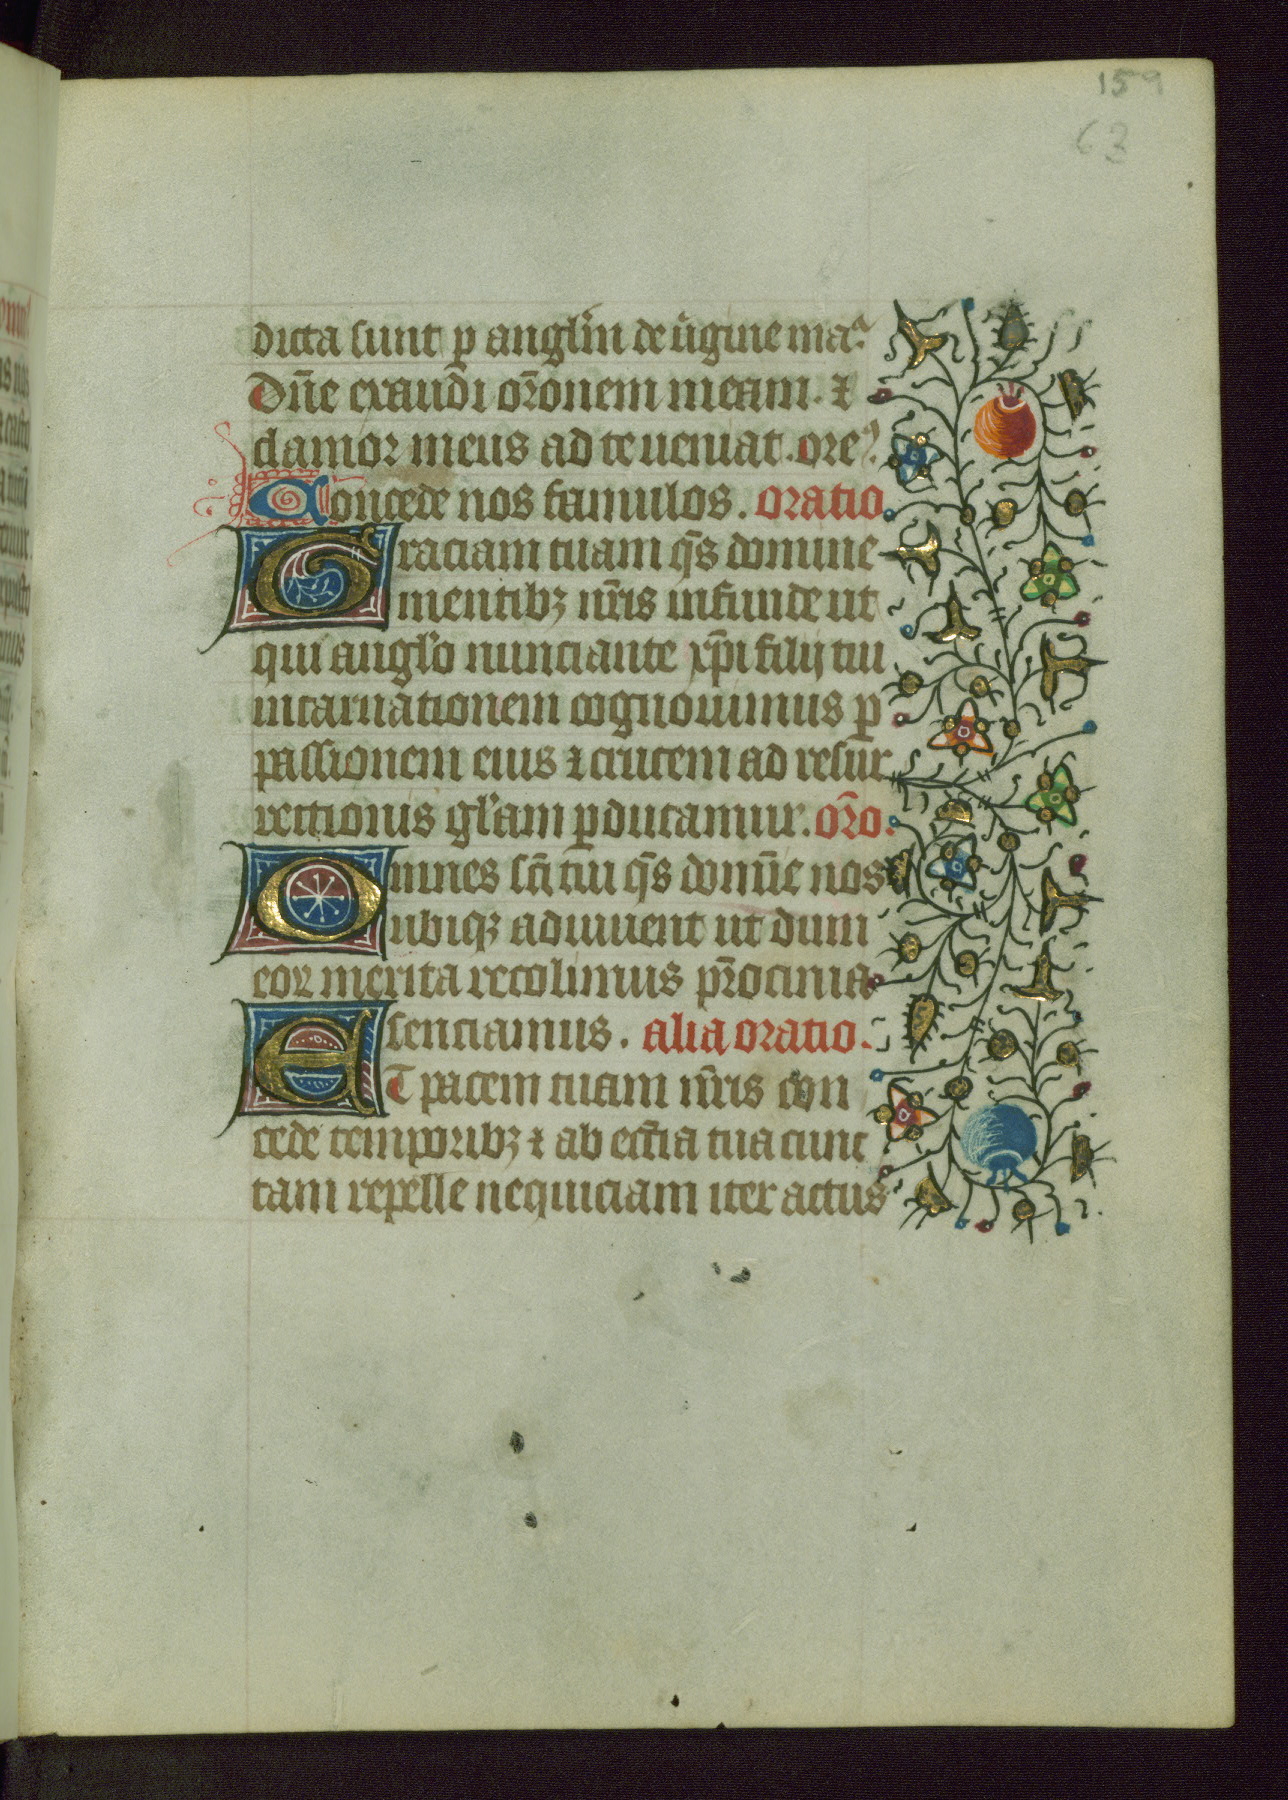 159
63
dicta sunt ꝑ angl̃m de ũgine maᵃ
Dn̄e exaudi or̃onem meam. ⁊
clamor meus ad te ueniat. ore⁹.
Concede nos famulos. oratio
Graciam tuam q̄s domine
mentibꝫ nr̄is infunde ut
qui angl̃o nunciante xp̄i filij tui
incarnationem cognouimus ꝑ
passionem eius ⁊ crucem ad resur
rectionis gl̃am ꝑducamur. or̃o.
Omnes sc̄i tui q̄s domīe nos
ubiqꝫ adiuuent ut dum
eoꝝ merita recolimus pr̄ocinia
senciamus. alia oratio.
ET pacem tuam nr̄is con
cede temporibꝫ ⁊ ab ecc̄ia tua cunc
tam repelle nequiciam iter actus